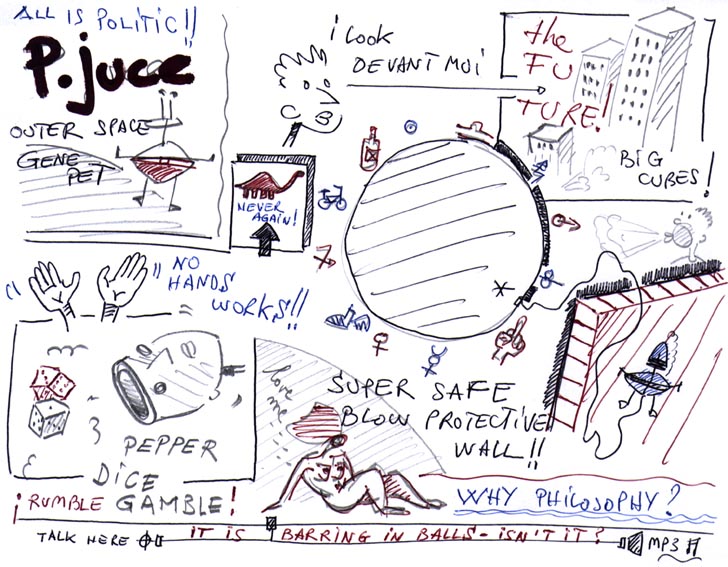 ALL IS POLITIC!!
P.juce
OUTER SPACE
GENE
PET
i look
DEVANT MOI
the
FU
TURE!
BIG
CUBES!
NEVER
AGAIN!
"NO
HANDS
WORKS!!
love
me
SUPER SAFE
BLOW PROTECTIVE
WALL!!
PEPPER
DICE
¡RUMBLE GAMBLE!
WHY PHILOSOPHY?
TALK HERE
IT IS BARRING IN BALLS - ISN'T IT?
MP3